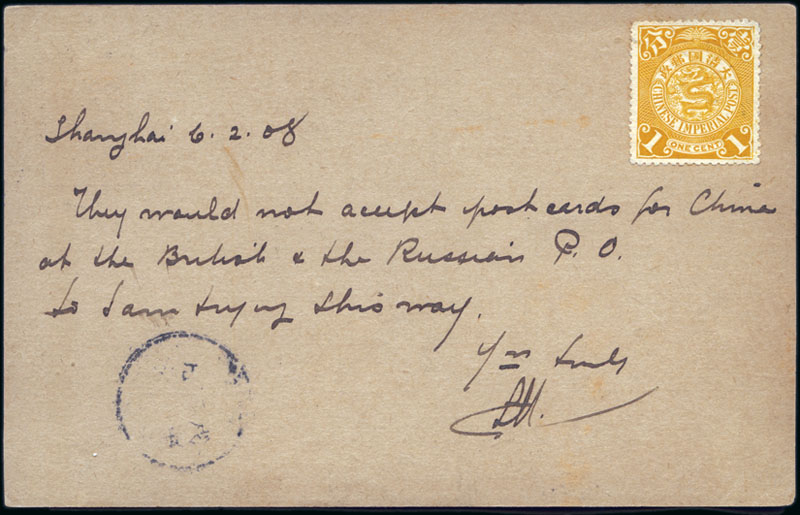 分 壹
大清國郵政
CHINESE IMPERIAL POST
1 ONE CENT 1
Shanghai 6. 2. 08
They would not accept postcards for China
at the British & the Russian P. O.
So I am trying this way.
Yrs truly